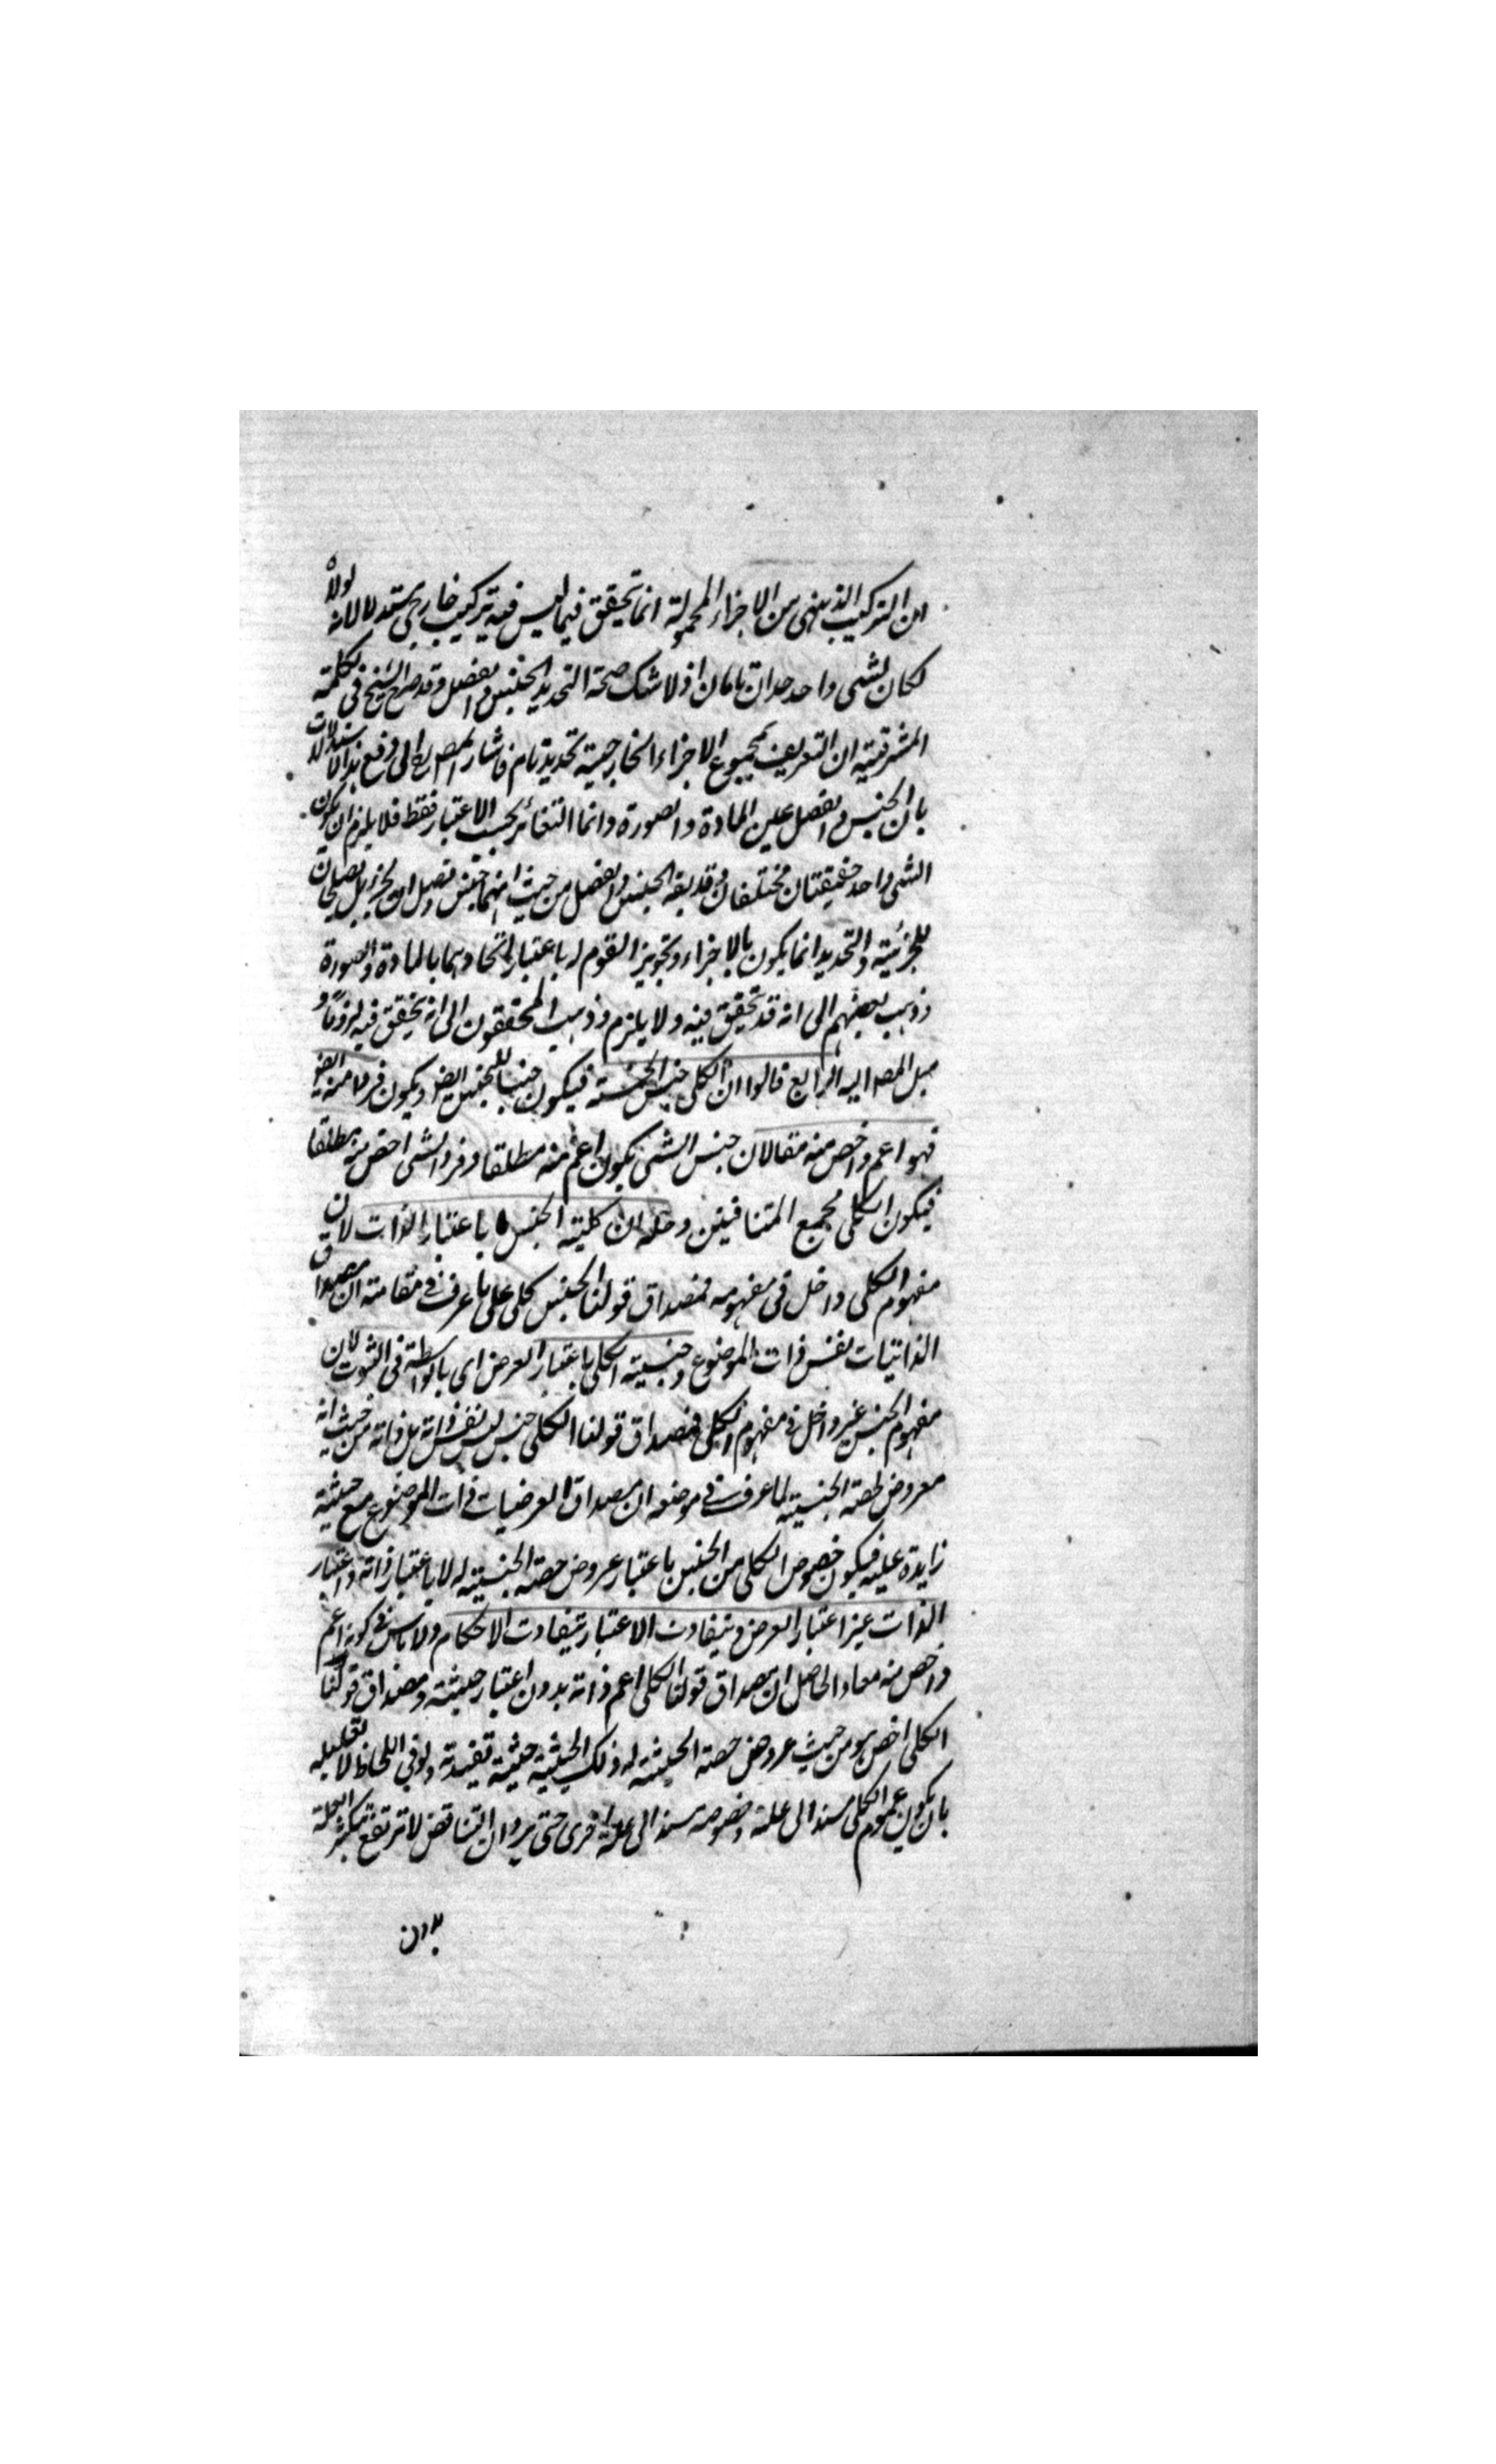 ان التركيب الذهنى من الاجزاء المحمولة انما تحقق فيما ليس فيه تركيب خارجى مستدلا لانه لولاه
لكان لشى واحد حدان تامان اذ لا شك صحة التحديد بالجنس والفصل وقد صرح الشيخ فى الحكمة
المشرقية ان التعريف بمجموع الاجزاء الخارجية تحديد تام فاشار المصر الى دفع هذا الاستدلال
بان الجنس والفصل عين المادة والصورة وانما التغائر بحسب الاعتبار فقط فلا يلزم ان يكون
الشى واحد حقيقتان مختلفان وقد يقه الجنس والفصل من حيث انهما جنس وفصل بل يصلحان
للجزئية والتحديد انما يكون بالاجزاء وتجويز القوم له باعتبار اتحادهما بالمادة والصورة
وذهب بعضهم الى انه قد تحقق فيه ولا يلزم وذهب المحققون الى انه تحقق فيه لزوما و
ميل المصه اليه الرابع قالوا ان الكلى جنس الخمسة فيكون جنسا للجنس ايضا ويكون فردا منه ايضا
فهو اعم واخص منه مقالان جنس الشى يكون اعم منه مطلقا وفرد الشى اخص منه مطلقا
فيكون الكلى مجمع المتنافيين وحله ان كلية الجنس باعتبار الذات لان
مفهوم الكلى داخل فى مفهومه فمصداق قولنا الجنس كلى على ما عرف فى مقامته ان مصداق
الذاتيات نفس ذات الموضوع وجنسية الكلى باعتبار العرض اى بالواسطة فى الثبوت لان
مفهوم الجنس غير داخل فى مفهوم الكلى فمصداق قولنا الكلى جنس ليس نفس ذاته بل ذاته من حيث انه
معروض لحصة الجنسية لما عرف فى موضعه ان مصداق العرضيات ذات الموضوع مع حيثية
زايدة عليه فيكون خصوص الكلى من الجنس باعتبار عروض حصة الجنسية له لا باعتبار ذاته واعتبار
الذات غير اعتبار العرض وبتفاوت الاعتبار يتفاوت الاحكام ولا باس فى كونه اعم
واخص منه معا والحاصل ان مصداق قولنا الكلى اعم ذاته بدون اعتبار حيثية ومصداق قولنا
الكلى اخص هو من حيث عروض حصة الجنسية له وذلك الحيثية حيثية تقييدية ولو فى اللحاظ لا تعليلية
بان يكون عموم الكلى مسندا الى علة وخصوصه مسندا الى علة اخرى حتى يرد ان التناقض لا ترتفع بتكثر العلة
بدون